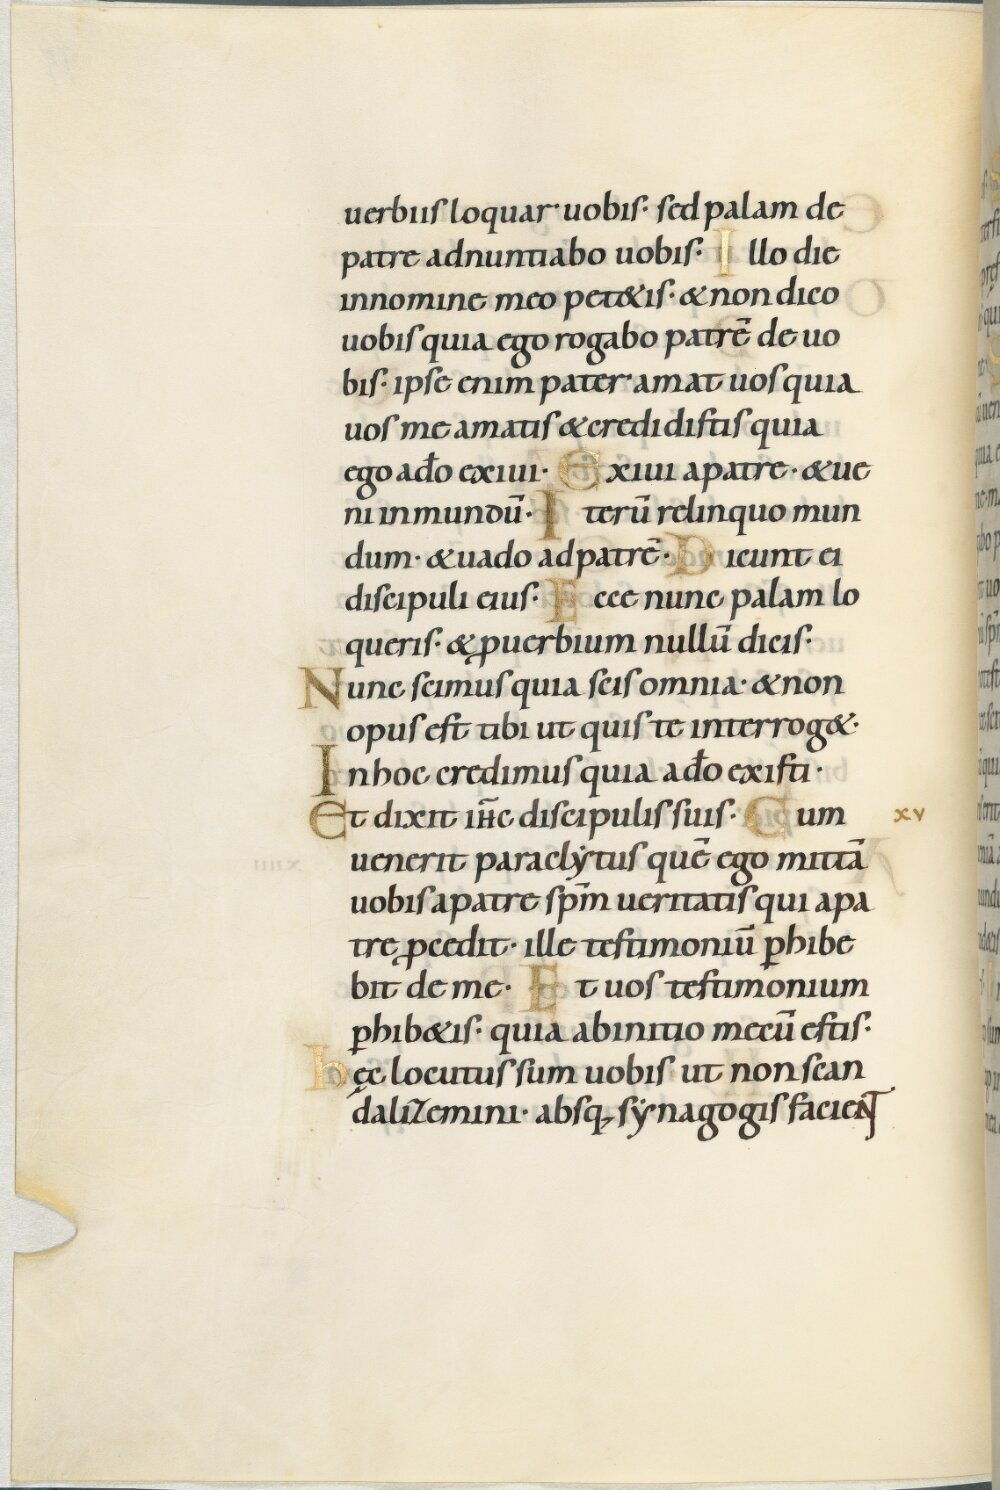 uerbiis loquar· uobis· sed palam de
patre adnuntiabo uobis· Illo die
innomine meo pet&is· & non dico
uobis quia ego rogabo patrē de uo
bis· ipse enim pater· amat uos quia
uos me amatis & credidistis quia
ego ad̄o exiui· Exiui apatre· & ue
ni in mundū· Iterū relinquo mun
dum· & uado ad patrē· Dicunt ei
discipuli eius· Ecce nunc palam lo
queris· & ꝓuerbium nullū dicis·
Nunc scimus quia scis omnia· & non
opus est tibi ut quis te interrog&·
Inhoc credimus quia ad̄o existi·
Et dixit ih̄c discipulis suis· Cum
xv
uenerit paraclẏtus quē ego mittā
uobis apatre sp̄m ueritatis qui apa
tre ꝓcedit· ille testimoniū ꝑhibe
bit de me· Et uos testimonium
ꝑhib&is· quia abinitio mecū estis·
hęc locutus sum uobis· ut non scan
dalizemini· absq; sẏnagogis facient